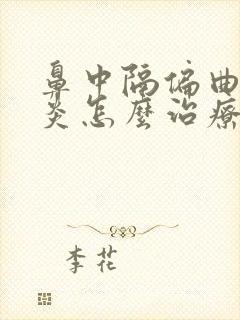 鼻中隔偏曲
炎怎麼治療
李花